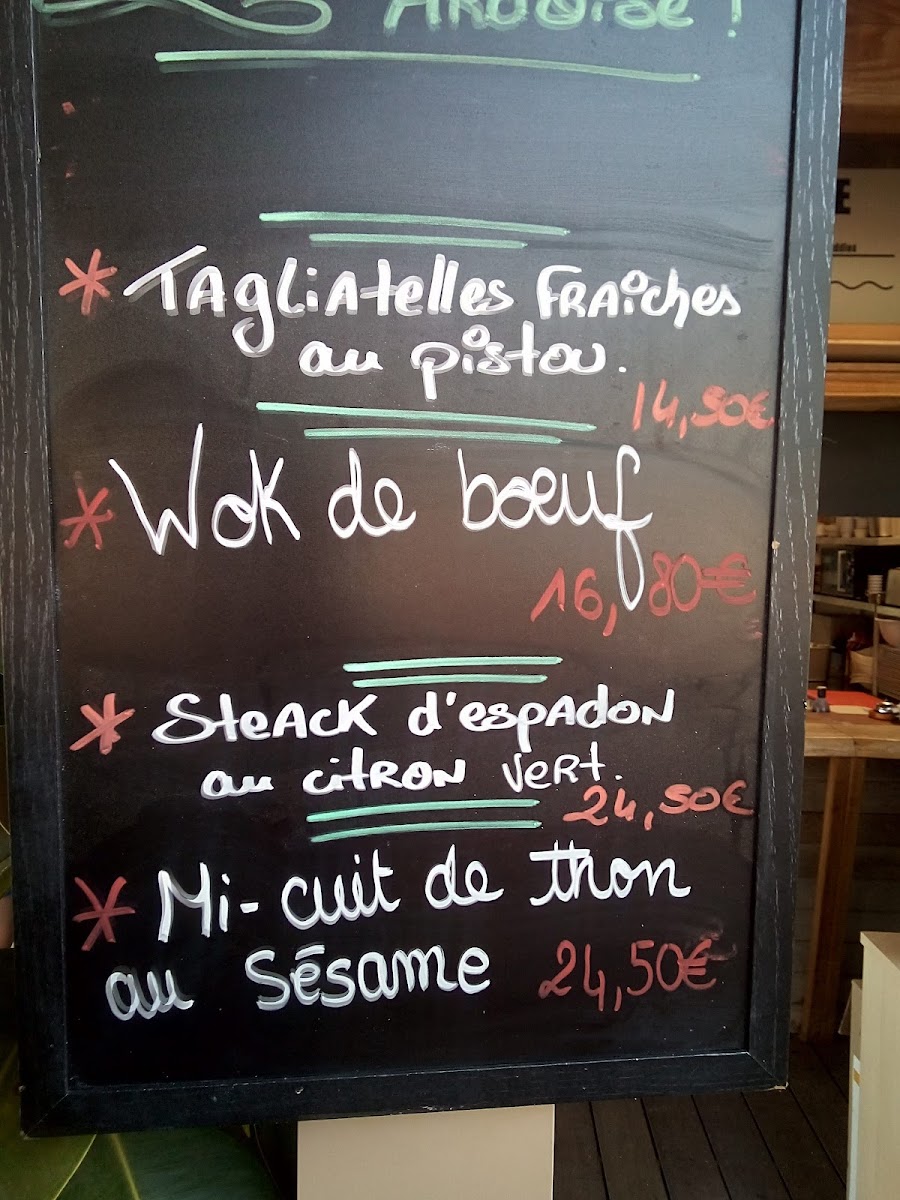 ARDOISE !
* Tagliatelles Fraîches
au pistou.
14,50€
* Wok de bœuf
16,80€
* Steack d'espadon
au citron vert.
24,50€
* Mi-cuit de thon
au Sésame 24,50€